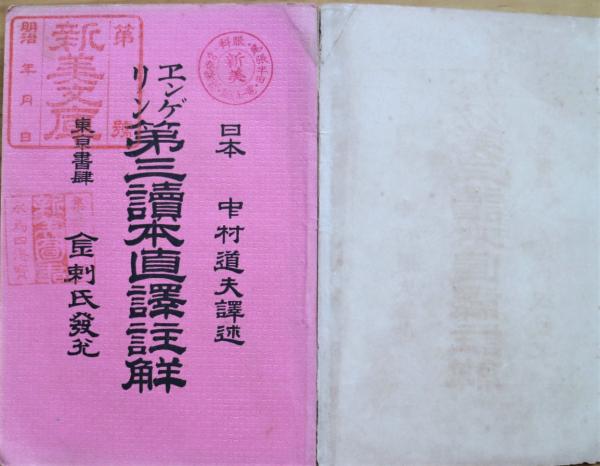 日本 中村道夫譯述
ヱンゲリン
第三讀本直譯註解
東京書肆 金刺氏發兌
第 號
新美文庫
明治 年 月 日
眼科
新美